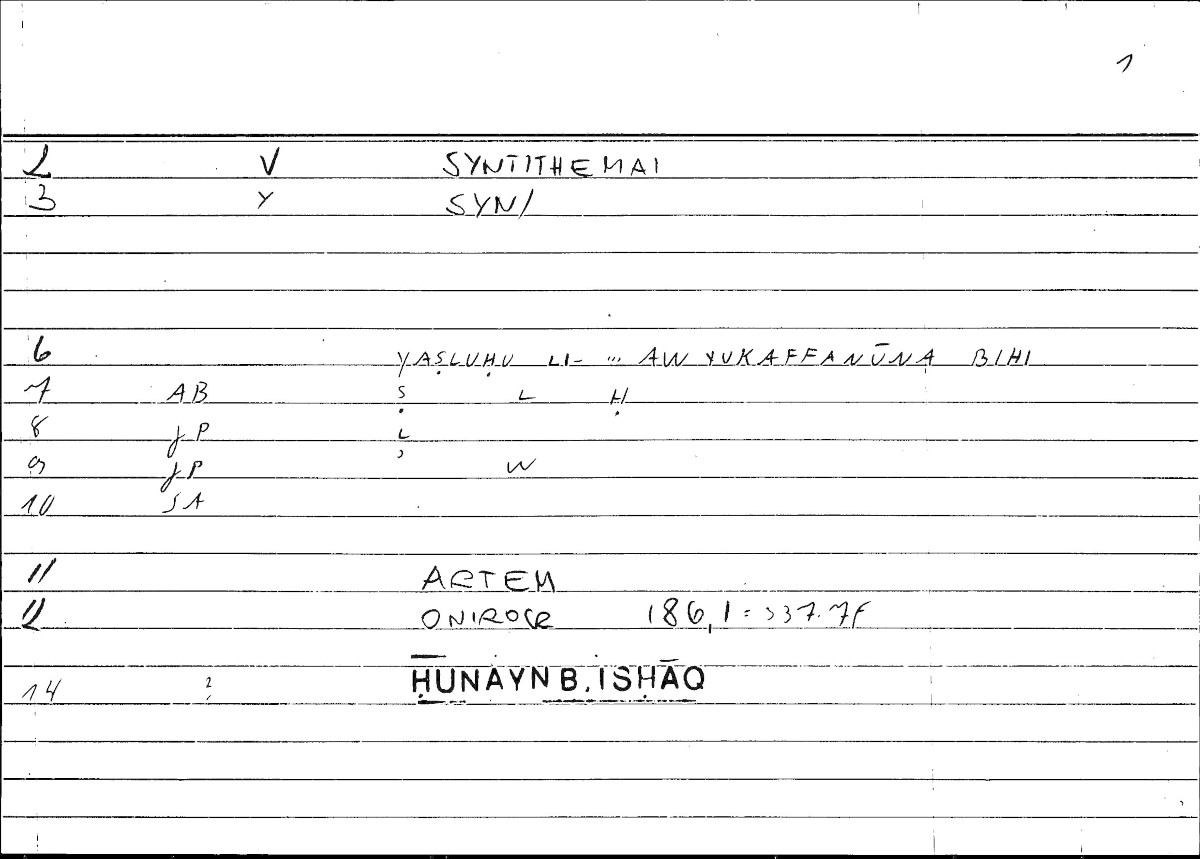 1
2 V SYNTITHEMAI
3 Y SYN/
6 YAṢLUḤU LI- ... AW YUKAFFANŪNA BIHI
7 AB Ṣ L Ḥ
8 JP L
9 JP ʾ W
10 SA
11 ARTEM
12 ONIROCR 186,1 = 337.7f
14 2 ḤUNAYN B. ISḤĀQ